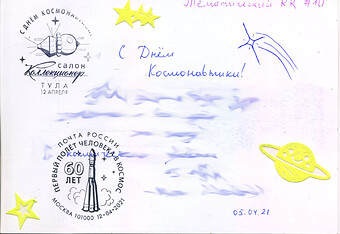 Тематический RR #10
С ДНЁМ КОСМОНАВТИКИ
САЛОН
Коллекционер
ТУЛА
12 АПРЕЛЯ
С Днём
Космонавтики!
ПОЧТА РОССИИ
ПЕРВЫЙ ПОЛЕТ ЧЕЛОВЕКА В КОСМОС
60
ЛЕТ
МОСКВА 101000 12•04•2021
05.04.21